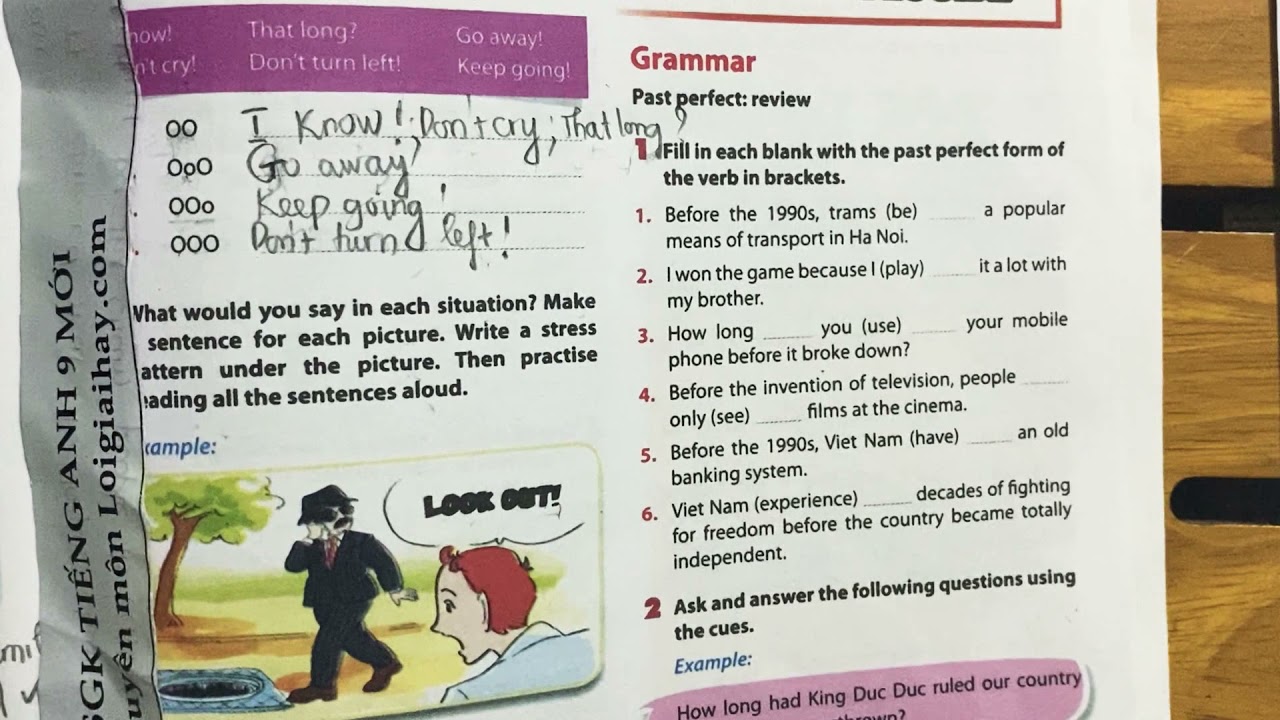 That long?
Go away!
n't cry!
Don't turn left!
Keep going!
OO I Know!; Don't cry; That long?
OoO Go away!
OOo Keep going!
OOO Don't turn left!
What would you say in each situation? Make
sentence for each picture. Write a stress
attern under the picture. Then practise
ading all the sentences aloud.
xample:
LOOK OUT!
SGK TIẾNG ANH 9 MỚI
uyên môn Loigiaihay.com
Grammar
Past perfect: review
1 Fill in each blank with the past perfect form of
the verb in brackets.
1. Before the 1990s, trams (be) ______ a popular
means of transport in Ha Noi.
2. I won the game because I (play) ______ it a lot with
my brother.
3. How long ______ you (use) ______ your mobile
phone before it broke down?
4. Before the invention of television, people ______
only (see) ______ films at the cinema.
5. Before the 1990s, Viet Nam (have) ______ an old
banking system.
6. Viet Nam (experience) ______ decades of fighting
for freedom before the country became totally
independent.
2 Ask and answer the following questions using
the cues.
Example:
How long had King Duc Duc ruled our country